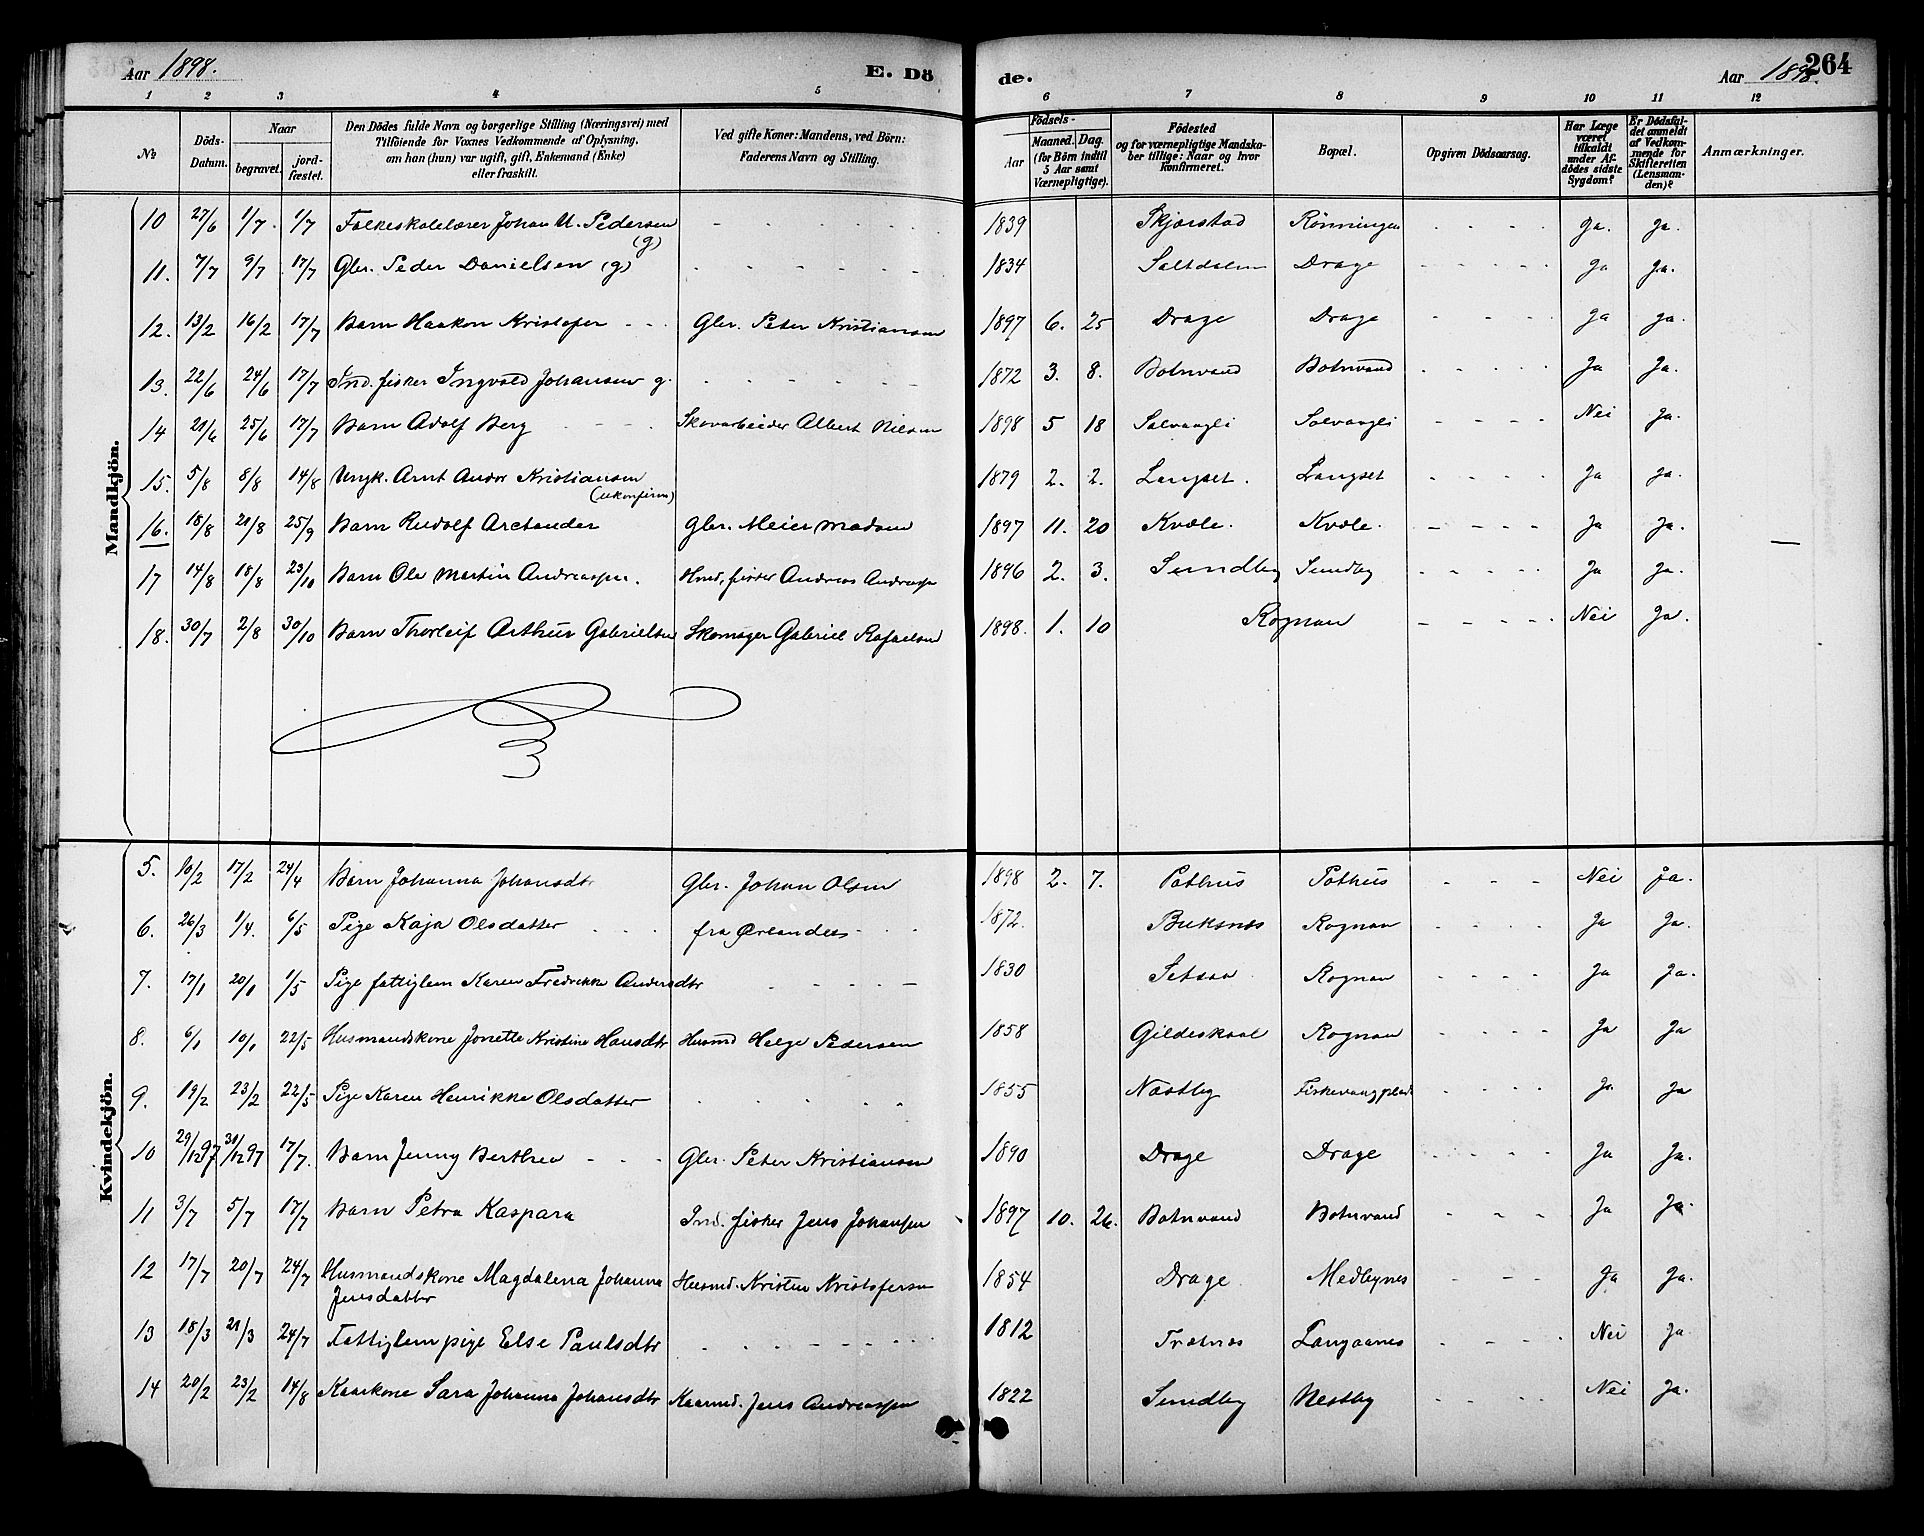 Aar 1898. E. Dö de. Aar 1898. 264
1 2 3 4 5 6 7 8 9 10 11 12
№ Döds-Datum. Naar begravet. jordfæstet. Den Dödes fulde Navn og borgerlige Stilling (Næringsvei) med Tilföiende for Voxnes Vedkommende af Oplysning, om han (hun) var ugift, gift, Enkemand (Enke) eller fraskilt. Ved gifte Koner: Mandens, ved Börn: Faderens Navn og Stilling. Födsels- Aar Maaned. Dag. (for Börn indtil 5 Aar samt Værnepligtige). Födested og for værnepligtige Mandskaber tillige: Naar og hvor konfirmeret. Bopæl. Opgiven Dödsaarsag. Har Læge været tilkaldt under Afdödes sidste Sygdom? Er Dödsfaldet anmeldt af Vedkommende for Skifteretten (Lensmanden)? Anmærkninger.
Mandkjön.
10 27/6 1/7 1/7 Folkeskolelærer Johan U. Pedersen (g) 1839 Skjærstad Rönningen Ja. Ja.
11. 7/7 9/7 17/7 Gbr. Peder Danielsen (g) 1834 Saltdalen Drage Ja Ja.
12. 13/2 16/2 17/7 Barn Haakon Kristofer Gbr. Peter Kristiansen 1897 6. 25 Drage Drage Ja Ja.
13. 22/6 24/6 17/7 Ind. fisker Ingvald Johansen g. 1872 3. 8. Botnvand Botnvand Ja Ja.
14 21/6 25/6 17/7 Barn Adolf Berg Skovarbeider Albert Nilsen 1898 5 18 Solvaagli Solvaagli Nei Ja.
15. 5/8 8/8 14/8 Ungk. Arnt Andor Kristiansen (ukonfirm) 1879 2. 2. Langset. Langset Ja Ja.
16. 18/8 21/8 25/9 Barn Rudolf Arctander Gbr. Meier Madsen 1897 11. 20 Kvæle. Kvæle. Ja Ja. —
17 14/8 18/8 23/10 Barn Ole Martin Andreassen. Husd. fisker Andreas Andreassen 1896 2. 3. Sundby Sundby Ja Ja.
18. 30/7 2/8 30/10 Barn Thorleif Arthur Gabrielsen Skomager Gabriel Rafaelsen 1898. 1. 10 Rognan Nei Ja.
Kvindekjön.
5. 10/2 17/2 24/4 Barn Johanna Johansdtr Gbr. Johan Olsen 1898 2. 7. Pothus Pothus Nei Ja.
6. 26/3 1/4. 6/5 Pige Kaja Olsdatter fra Ørlandets 1872. Buksnæs Rognan Ja Ja.
7. 17/1 20/1 1/5 Pige fattiglem Karen Fredrikke Andersdtr 1830 Setsaa Rognan Ja Ja.
8. 6/1 10/1 22/5 Husmandskone Jonette Kristine Hansdtr Husmd Helge Pedersen 1858 Gildeskaal Rognan Ja Ja
9. 19/2 23/2 22/5 Pige Karen Henrikke Olsdatter 1855 Næstby Fiskevaagplads Ja Ja
10 29/12 97 31/12 97 17/7. Barn Jenny Berthea Gbr. Peter Kristiansen 1890 Drage Drage Ja Ja.
11 3/7 5/7 17/7 Barn Petra Kaspara Ind. fisker Jens Johansen 1897 10. 26. Botnvand Botnvand Ja Ja.
12 17/7 20/7 24/7 Husmandskone Magdalena Johanna Jensdatter Husmd. Kristen Kristofersen 1854 Drage Medbynes Ja Ja.
13 18/3 21/3 24/7 Fattiglem pige Else Paulsdtr 1812 Trætnæs Langaanes Nei Ja
14 20/2 23/2 14/8 Kaarkone Sara Johanna Johansdtr Kaarmd. Jens Andreassen 1822 Sundby Nestby Nei Ja.